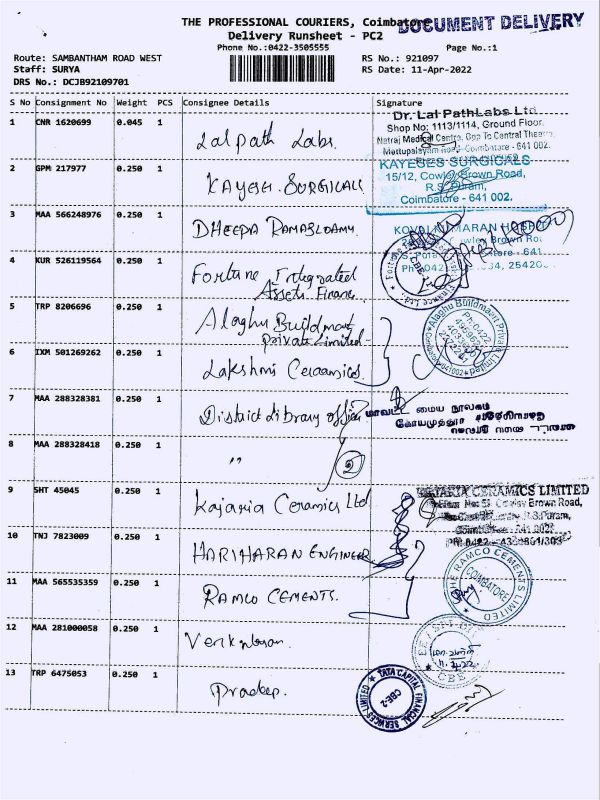 THE PROFESSIONAL COURIERS, Coimbatore
DOCUMENT DELIVERY
Delivery Runsheet - PC2
Phone No.:0422-3505555
Page No.:1
Route: SAMBANTHAM ROAD WEST
RS No.: 921097
Staff: SURYA
RS Date: 11-Apr-2022
DRS No.: DCJB92109701
S No Consignment No Weight PCS Consignee Details Signature
1 CNR 1620699 0.045 1
Lal path Labs.
Dr. Lal PathLabs Ltd
Shop No: 1113/1114, Ground Floor,
Natraj Medical Centre, Opp To Central Theatre,
Mettupalayam Road, Coimbatore - 641 002.
2 GPM 217977 0.250 1
KAYESES SURGICALS
KAYESES SURGICALS
15/12, Cowley Brown Road,
R.S. Puram,
Coimbatore - 641 002.
3 MAA 566248976 0.250 1
DHEEPA RAMASLOAMY.
Cowley Brown Ro
4 KUR 526119564 0.250 1
Fortune Integrated
Assets Finance
CBE
5 TRP 8206696 0.250 1
Alaghu Buildmart
private Limited
Alaghu Buildmart Private Limited
6 IXM 501269262 0.250 1
Lakshmi Ceraamics
7 MAA 288328381 0.250 1
District library office
மாவட்ட மைய நூலகம்
கோயமுத்தூர்
8 MAA 288328418 0.250 1
"
2
9 SHT 45045 0.250 1
Kajaria Ceramics Ltd
KAJARIA CERAMICS LIMITED
Cowley Brown Road,
R.S.Puram,
10 TNJ 7823009 0.250 1
HARIHARAN ENGINEER
11 MAA 565535359 0.250 1
RAMCO CEMENTS.
THE RAMCO CEMENTS LIMITED
COIMBATORE
12 MAA 281000058 0.250 1
CBE
13 TRP 6475053 0.250 1
Pradeep.
TATA CAPITAL FINANCIAL SERVICES LIMITED
CBE-2